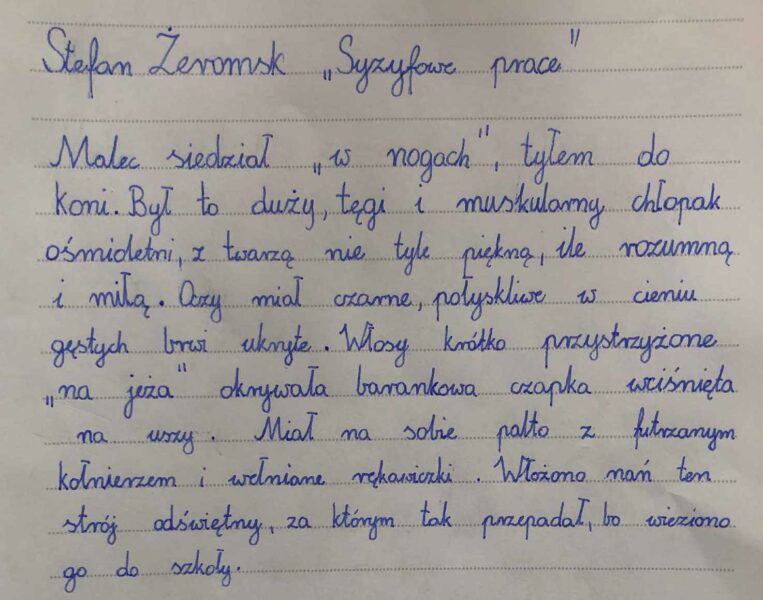 Stefan Żeromsk „Syzyfowe prace"
Malec siedział „w nogach", tyłem do
koni. Był to duży, tęgi i muskularny chłopak
ośmioletni, z twarzą nie tyle piękną, ile rozumną
i miłą. Oczy miał czarne, połyskliwe w cieniu
gęstych brwi ukryte. Włosy krótko przystrzyżone
„na jeża" okrywała barankowa czapka wciśnięta
na uszy. Miał na sobie palto z futrzanym
kołnierzem i wełniane rękawiczki. Włożono nań ten
strój odświętny, za którym tak przepadał, bo wieziono
go do szkoły.